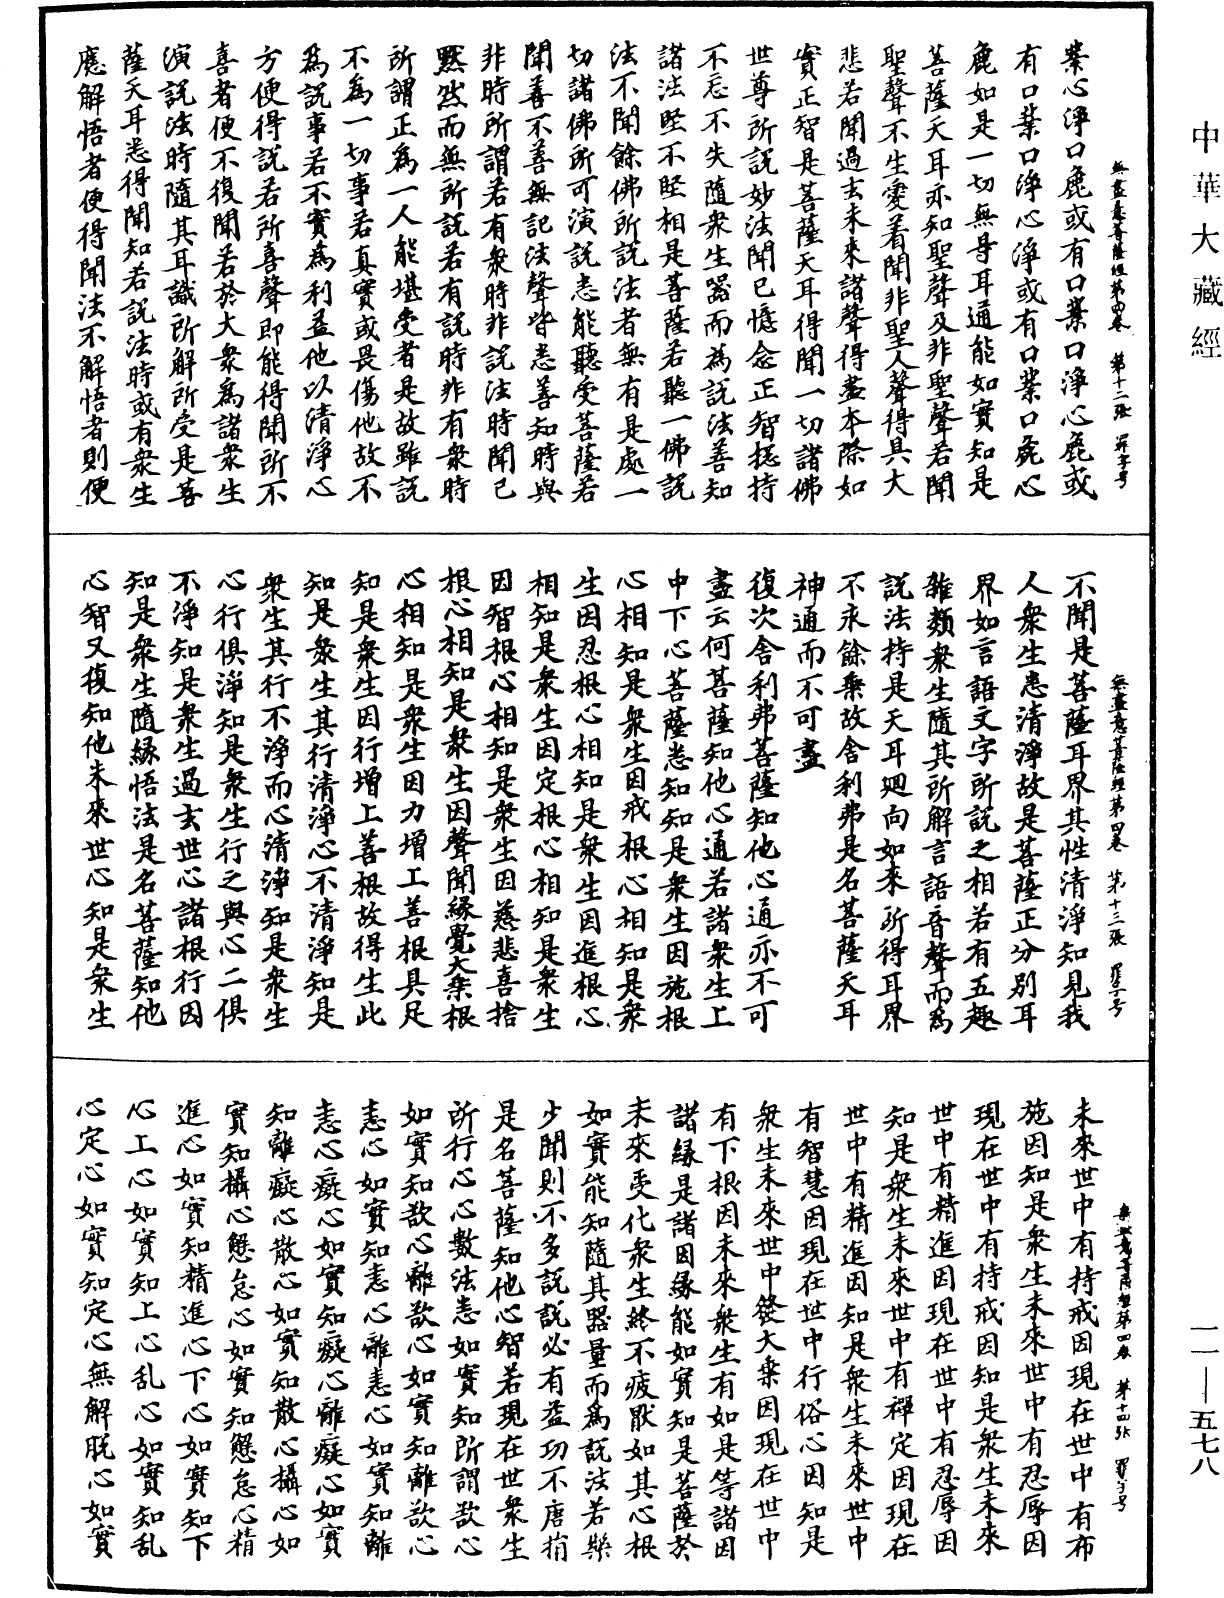 中華大藏經
無盡意菩薩經第四卷 第十二張 羅字号
業心淨口麁或有口業口淨心麁或
有口業口淨心淨或有口業口麁心
麁如是一切無㝵耳通能如實知是
菩薩天耳亦知聖聲及非聖聲若聞
聖聲不生愛著聞非聖人聲得具大
悲若聞過去未來諸聲得盡本際如
實正智是菩薩天耳得聞一切諸佛
世尊所說妙法聞已憶念正智揔持
不忘不失隨衆生器而為說法善知
諸法堅不堅相是菩薩若聽一佛說
法不聞餘佛所說法者無有是處一
切諸佛所可演說悉能聽受菩薩若
聞善不善無記法聲皆悉善知時與
非時所謂若有衆時非說法時聞已
默然而無所說若有說時非有衆時
所謂正為一人能堪受者是故雖說
不為一切事若真實或畏傷他故不
為說事若不實為利益他以清淨心
方便得說若所喜聲即能得聞所不
喜者便不復聞若於大衆為諸衆生
演說法時隨其耳識所解所受是菩
薩天耳悉得聞知若說法時或有衆生
應解悟者便得聞法不解悟者則便
無盡意菩薩經第四卷 第十三張 羅字号
不聞是菩薩耳界其性清淨知見我
人衆生悉清淨故是菩薩正分別耳
界如言語文字所說之相若有五趣
雜類衆生隨其所解言語音聲而為
說法持是天耳迴向如來所得耳界
不求餘乘故舍利弗是名菩薩天耳
神通而不可盡
復次舍利弗菩薩知他心通亦不可
盡云何菩薩知他心通若諸衆生上
中下心菩薩悉知知是衆生因施根
心相知是衆生因戒根心相知是衆
生因忍根心相知是衆生因進根心
相知是衆生因定根心相知是衆生
因智根心相知是衆生因慈悲喜捨
根心相知是衆生因聲聞緣覺大乘根
心相知是衆生因力增上善根具足
知是衆生因行增上善根故得生此
知是衆生其行清淨心不清淨知是
衆生其行不淨而心清淨知是衆生
心行俱淨知是衆生行之與心二俱
不淨知是衆生過去世心諸根行因
知是衆生隨緣悟法是名菩薩知他
心智又復知他未來世心知是衆生
無盡意菩薩經第四卷 第十四張 羅字号
未來世中有持戒因現在世中有布
施因知是衆生未來世中有忍辱因
現在世中有持戒因知是衆生未來
世中有精進因現在世中有忍辱因
知是衆生未來世中有禪定因現在
世中有精進因知是衆生未來世中
有智慧因現在世中行俗心因知是
衆生未來世中發大乘因現在世中
有下根因未來衆生有如是等諸因
諸緣是諸因緣能如實知是菩薩於
未來受化衆生終不疲厭如其心根
如實能知隨其器量而為說法若樂
少聞則不多說說必有益功不唐捐
是名菩薩知他心智若現在世衆生
所行心心數法悉如實知所謂欲心
如實知欲心離欲心如實知離欲心
恚心如實知恚心離恚心如實知離
恚心癡心如實知癡心離癡心如實
知離癡心散心如實知散心攝心如
實知攝心懈怠心如實知懈怠心精
進心如實知精進心下心如實知下
心上心如實知上心乱心如實知乱
心定心如實知定心無解脫心如實
一一—五七八